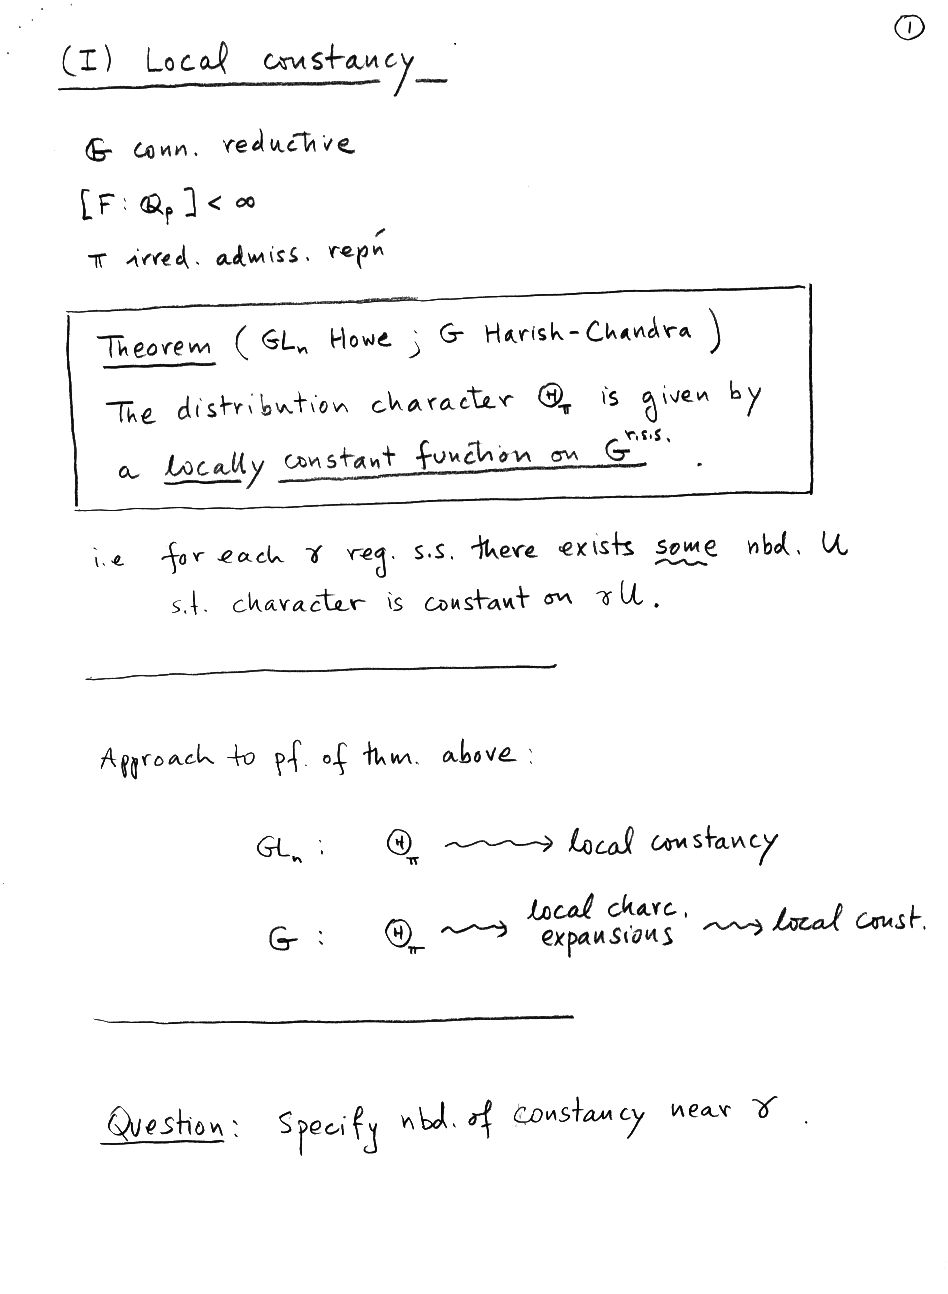 ①
(I) Local constancy
G conn. reductive
[F : ℚp] < ∞
π irred. admiss. repń
Theorem ( GLn Howe ; G Harish-Chandra )
The distribution character Θπ is given by
a locally constant function on G^r.s.s. .
i.e for each γ reg. s.s. there exists some nbd. U
s.t. character is constant on γU.
Approach to pf. of thm. above :
GLn : Θπ ⟿ local constancy
G : Θπ ⟿ local charc. expansions ⟿ local const.
Question: Specify nbd. of constancy near γ .